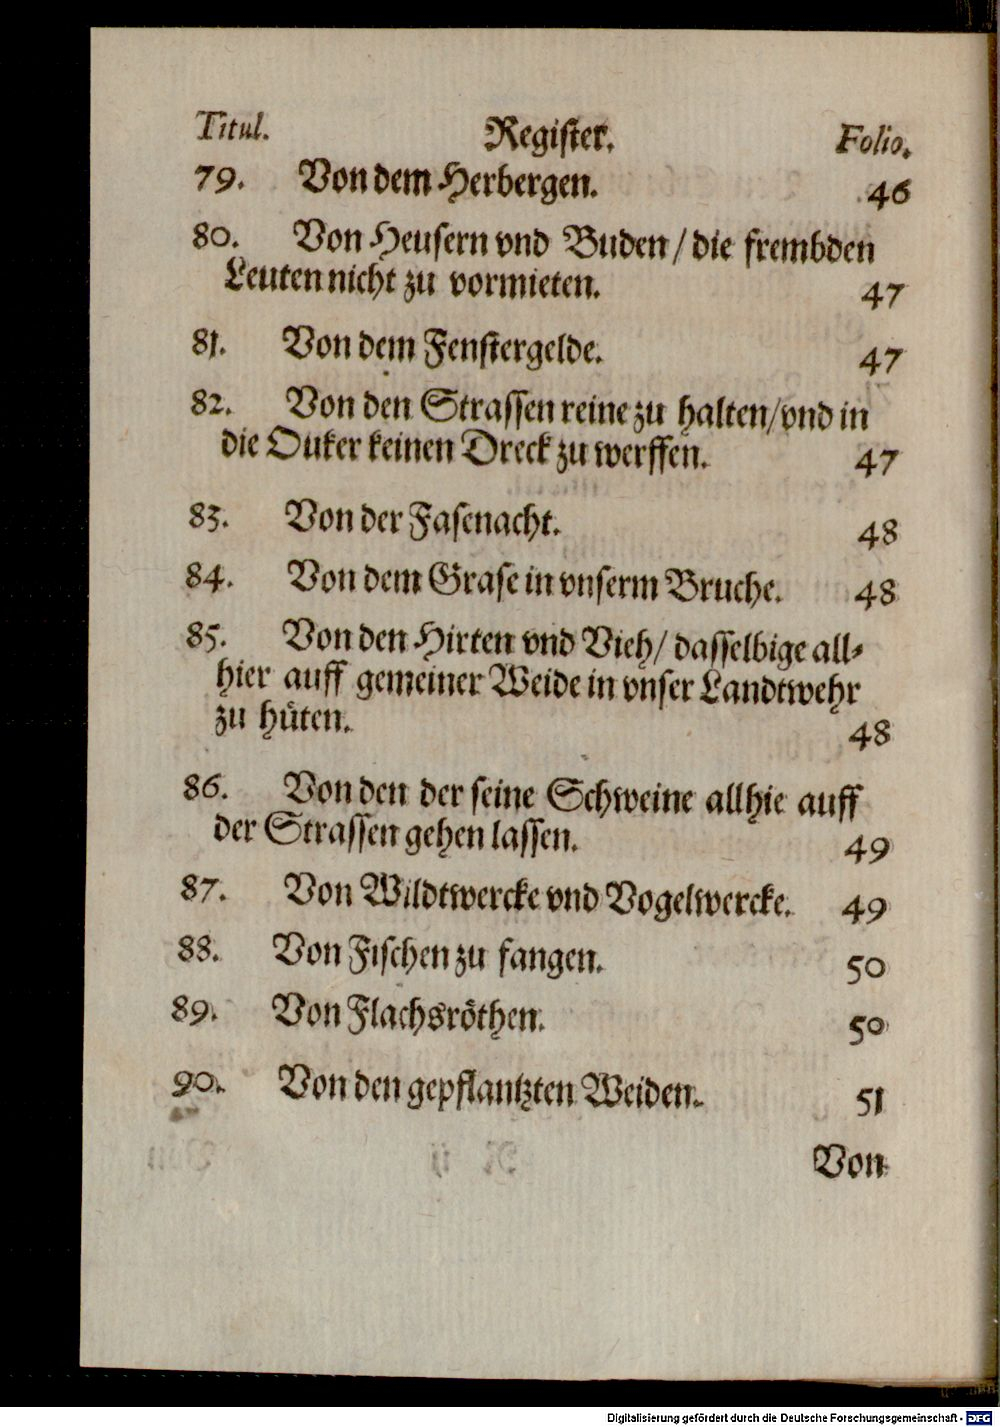 Titul. Register. Folio.
79. Von dem Herbergen. 46
80. Von Heusern vnd Buden / die frembden
Leuten nicht zu vormieten. 47
81. Von dem Fenstergelde. 47
82. Von den Strassen reine zu halten/vnd in
die Ouker keinen Dreck zu werffen. 47
83. Von der Fasenacht. 48
84. Von dem Grase in vnserm Bruche. 48
85. Von den Hirten vnd Vieh/ dasselbige all-
hier auff gemeiner Weide in vnser Landtwehr
zu hüten. 48
86. Von den der seine Schweine allhie auff
der Strassen gehen lassen. 49
87. Von Wildtwercke vnd Vogelwercke. 49
88. Von Fischen zu fangen. 50
89. Von Flachsröthen. 50
90. Von den gepflantzten Weiden. 51
Von
Digitalisierung gefördert durch die Deutsche Forschungsgemeinschaft - DFG